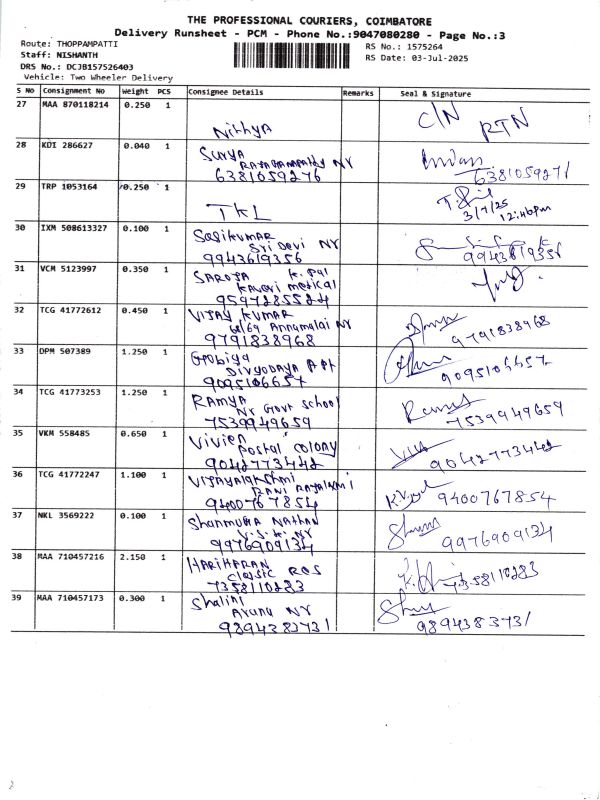 THE PROFESSIONAL COURIERS, COIMBATORE
Delivery Runsheet - PCM - Phone No.:9047080280 - Page No.:3
Route: THOPPAMPATTI
RS No.: 1575264
Staff: NISHANTH
RS Date: 03-Jul-2025
DRS No.: DCJB157526403
Vehicle: Two Wheeler Delivery
S No Consignment No Weight PCS Consignee Details Remarks Seal & Signature
27 MAA 870118214 0.250 1
C/N RTN
Nithya
28 KDI 286627 0.040 1 Surya
NR
6381059276 6381059271
29 TRP 1053164 0.250 1
TKL 3/7/25
12:46pm
30 IXM 508613327 0.100 1 Sasikumar
Sri Devi NR
9943619356 9943619356
31 VCM 5123997 0.350 1 SAROJA K. Pal
Kaveri medical
9597285524
32 TCG 41772612 0.450 1 VIJAY KUMAR
68/69 Annamalai NR
9791838968 9791838968
33 DPM 507389 1.250 1 Gobiya
Divyodaya Apt
9095106657 9095106657
34 TCG 41773253 1.250 1 RAMYA
Nr Govt School
7539949659 7539949659
35 VKM 558485 0.650 1 Vivien
Postal colony
9042773442 9042773442
36 TCG 41772247 1.100 1 VIJAYALAKSHMI
RANI
9400767854 9400767854
37 NKL 3569222 0.100 1 Shanmuga Nathan
NR
9976909134 9976909134
38 MAA 710457216 2.150 1 HARIHARAN
Classic RGS
7358110283 7358110283
39 MAA 710457173 0.300 1 Shalini
Aruna NR
9894383731 9894383731